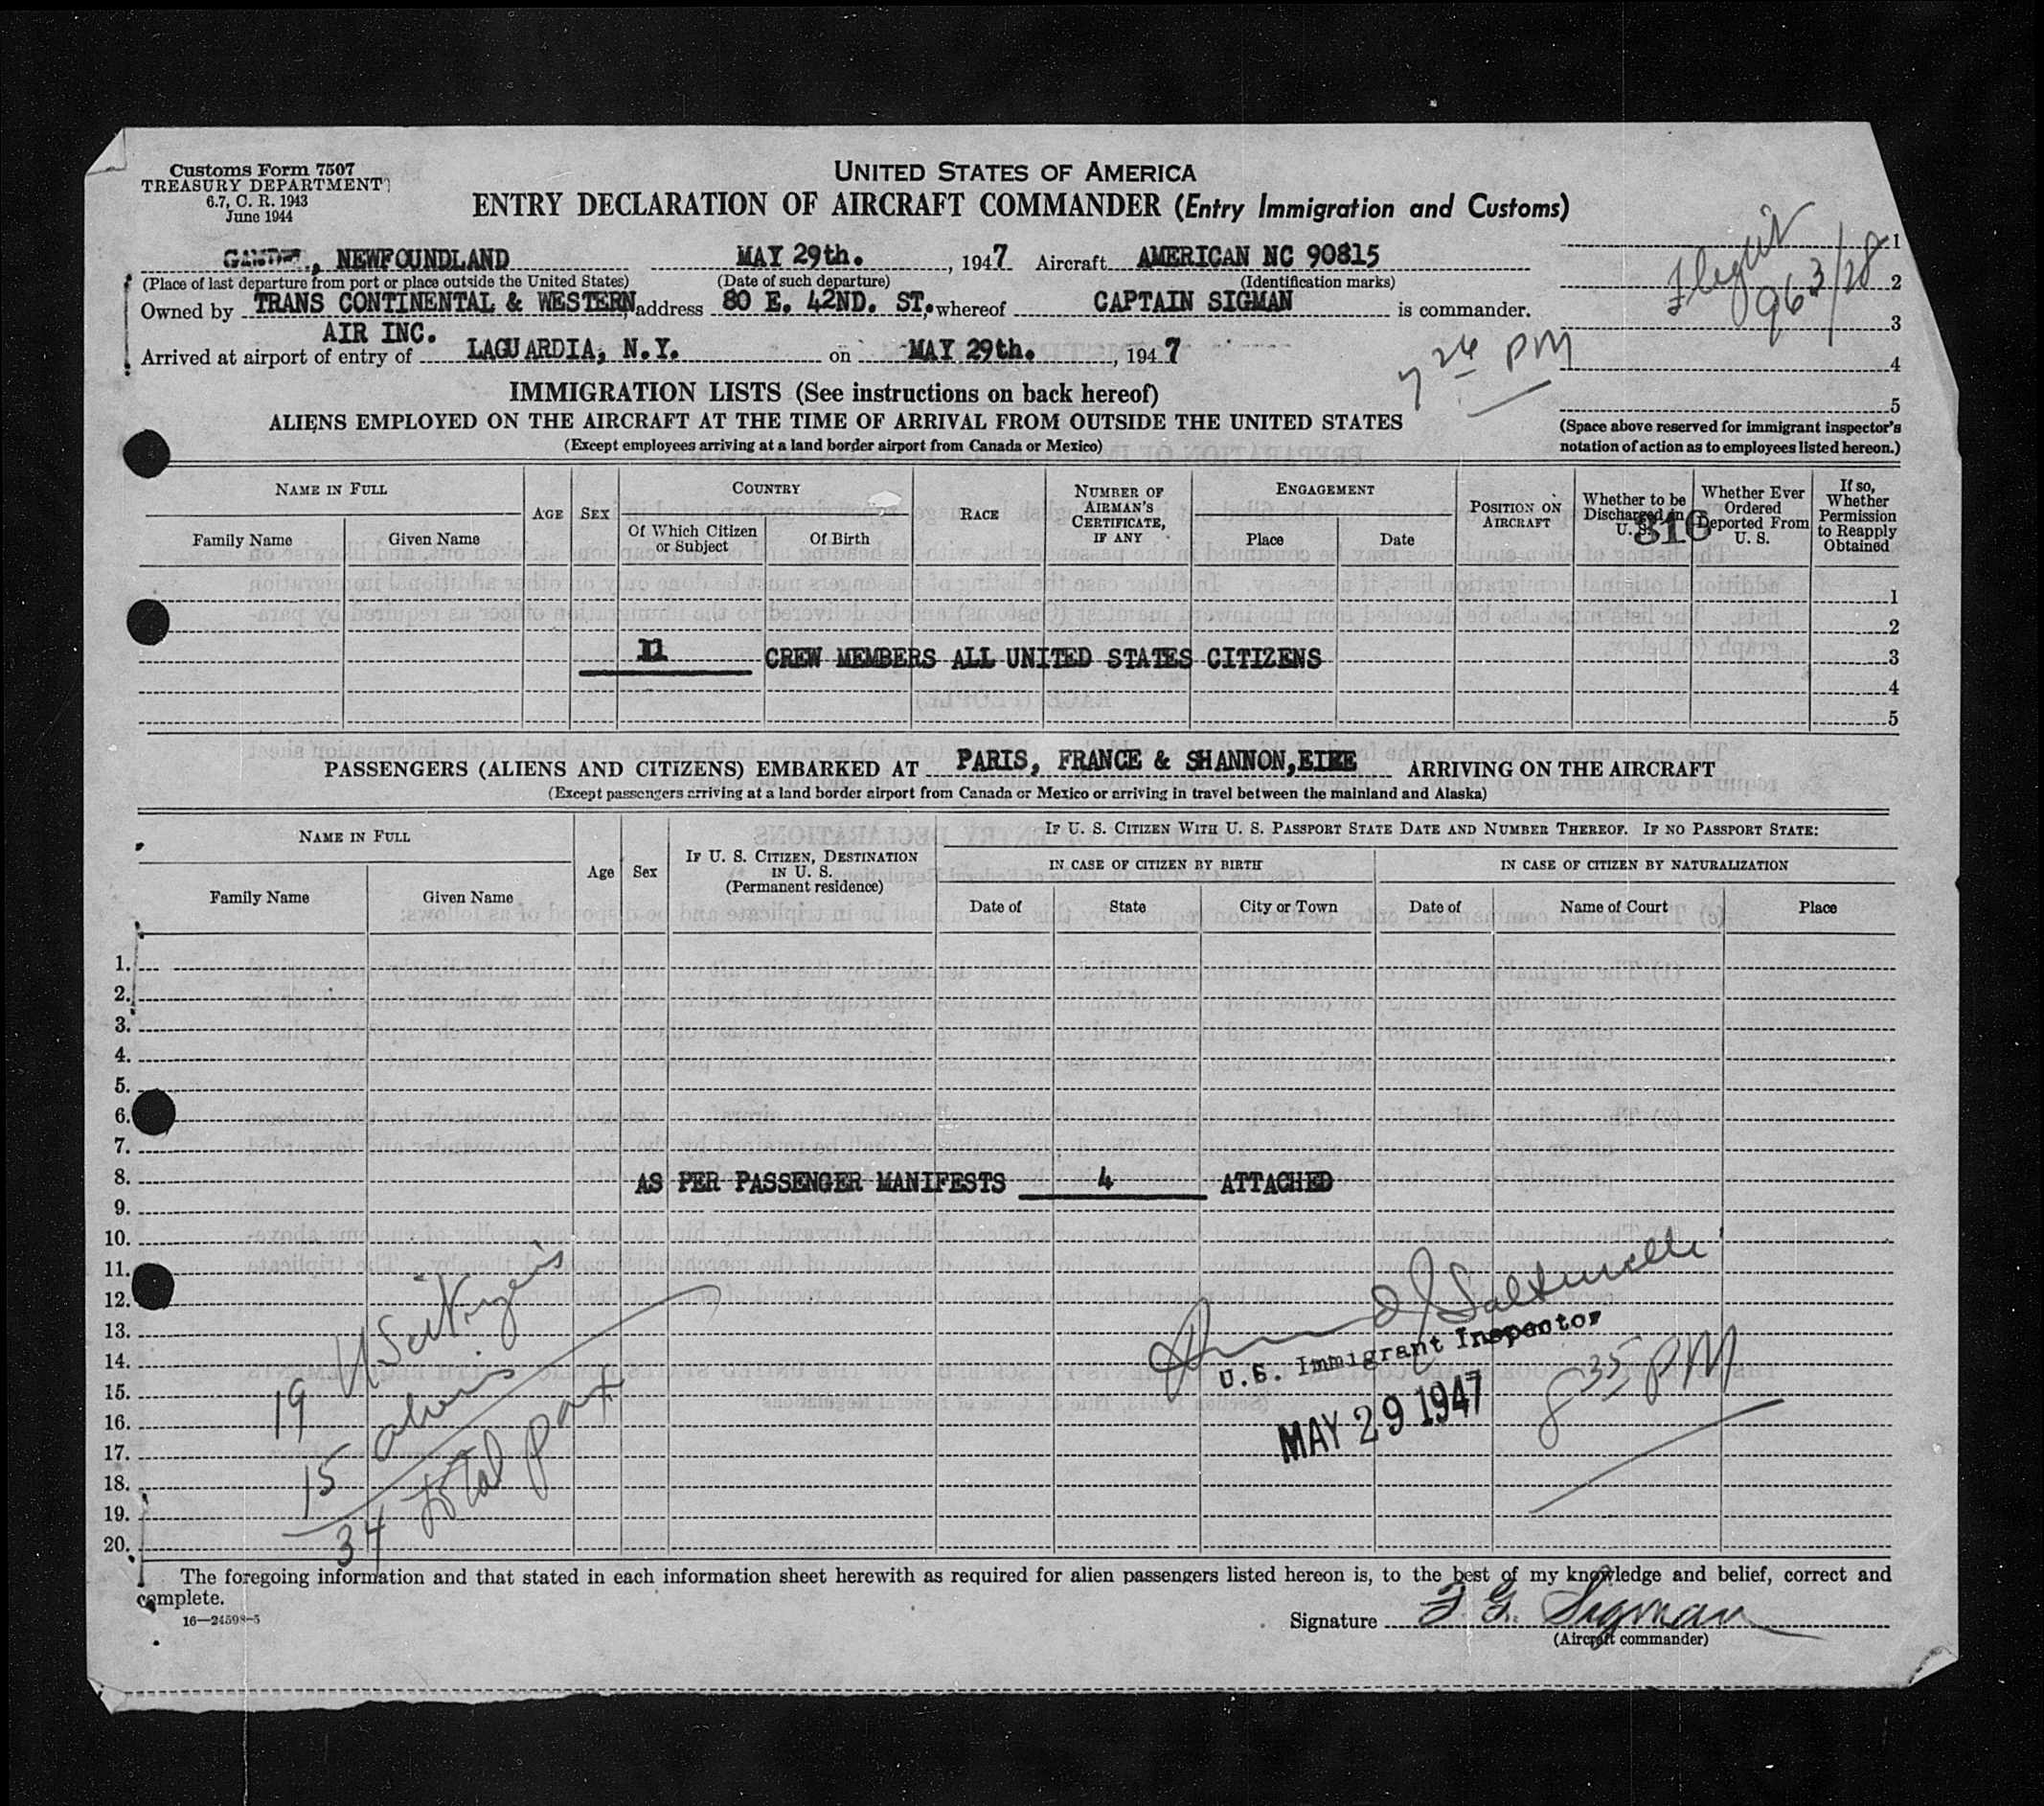 Customs Form 7507
TREASURY DEPARTMENT
6.7, C. R. 1943
June 1944
UNITED STATES OF AMERICA
ENTRY DECLARATION OF AIRCRAFT COMMANDER (Entry Immigration and Customs)
, NEWFOUNDLAND MAY 29th. , 1947 Aircraft AMERICAN NC 90815
(Place of last departure from port or place outside the United States) (Date of such departure) (Identification marks)
Owned by TRANS CONTINENTAL & WESTERN, address 80 E. 42ND. ST., whereof CAPTAIN SIGMAN is commander.
AIR INC.
Arrived at airport of entry of LAGUARDIA, N.Y. on MAY 29th. , 1947
Flight
963/28
7 26 PM
1
2
3
4
5
(Space above reserved for immigrant inspector's
notation of action as to employees listed hereon.)
IMMIGRATION LISTS (See instructions on back hereof)
ALIENS EMPLOYED ON THE AIRCRAFT AT THE TIME OF ARRIVAL FROM OUTSIDE THE UNITED STATES
(Except employees arriving at a land border airport from Canada or Mexico)
NAME IN FULL
Family Name Given Name
AGE
SEX
COUNTRY
Of Which Citizen or Subject
Of Birth
RACE
NUMBER OF AIRMAN'S CERTIFICATE, IF ANY
ENGAGEMENT
Place Date
POSITION ON AIRCRAFT
Whether to be Discharged in U. S.
316
Whether Ever Ordered Deported From U. S.
If so, Whether Permission to Reapply Obtained
1
2
CREW MEMBERS ALL UNITED STATES CITIZENS 3
4
5
PASSENGERS (ALIENS AND CITIZENS) EMBARKED AT PARIS, FRANCE & SHANNON, EIRE ARRIVING ON THE AIRCRAFT
(Except passengers arriving at a land border airport from Canada or Mexico or arriving in travel between the mainland and Alaska)
NAME IN FULL
Family Name Given Name
Age
Sex
IF U. S. CITIZEN, DESTINATION IN U. S.
(Permanent residence)
IF U. S. CITIZEN WITH U. S. PASSPORT STATE DATE AND NUMBER THEREOF. IF NO PASSPORT STATE:
IN CASE OF CITIZEN BY BIRTH
IN CASE OF CITIZEN BY NATURALIZATION
Date of State City or Town Date of Name of Court Place
1.
2.
3.
4.
5.
6.
7.
8. AS PER PASSENGER MANIFESTS 4 ATTACHED
9.
10.
11.
12.
13.
14.
15.
16.
17.
18.
19.
20.
19 US Citizens
15 aliens
34 total pax
U.S. Immigrant Inspector
MAY 29 1947
8 35 PM
The foregoing information and that stated in each information sheet herewith as required for alien passengers listed hereon is, to the best of my knowledge and belief, correct and
complete.
16—24598-5
Signature F. G. Sigman
(Aircraft commander)